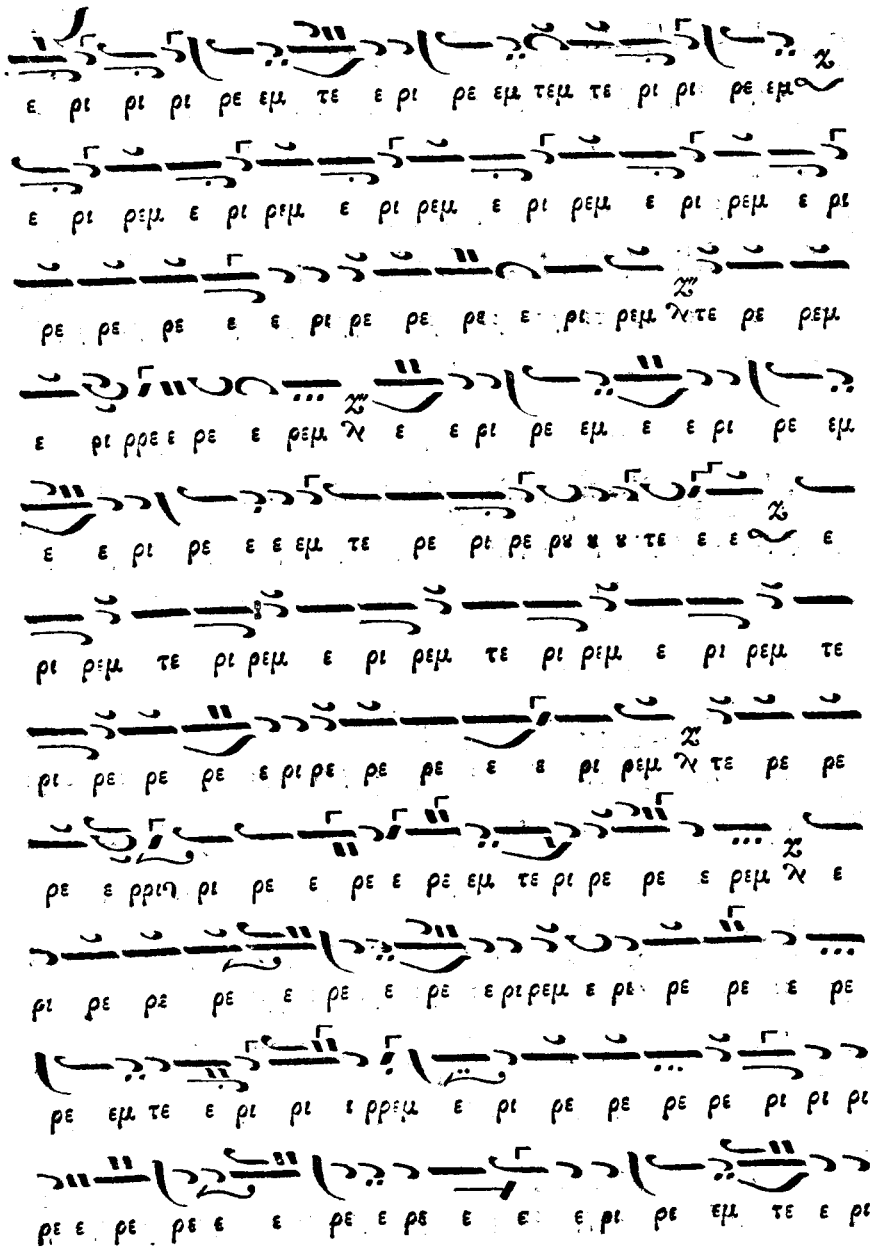 ε ρι ρι ρι ρε εμ τε ε ρι ρε εμ τεμ τε ρι ρι ρε εμ
ε ρι ρεμ ε ρι ρεμ ε ρι ρεμ ε ρι ρεμ ε ρι ρεμ ε ρι
ρε ρε ρε ε ε ρι ρε ρε ρε ε ρι ρεμ τε ρε ρεμ
ε ρι ρρε ε ρε ε ρεμ ε ε ρι ρε εμ ε ε ρι ρε εμ
ε ε ρι ρε ε ε εμ τε ρε ρι ρε ρȣ ȣ ȣ τε ε ε ε
ρι ρεμ τε ρι ρεμ ε ρι ρεμ τε ρι ρεμ ε ρι ρεμ τε
ρι ρε ρε ρε ε ρι ρε ρε ρε ε ε ρι ρεμ τε ρε ρε
ρε ε ρι ρε ε ρε ε ρε εμ τε ρι ρε ρε ε ρεμ ε
ρι ρε ρε ρε ε ρε ε ρε ε ρι ρεμ ε ρι ρε ρε ε ρε
ρε εμ τε ε ρι ρι ε ρρεμ ε ρι ρε ρε ρε ρε ρι ρι ρι
ρε ε ρε ρε ε ε ρε ε ρε ε ε ε ρι ρε εμ τε ε ρι